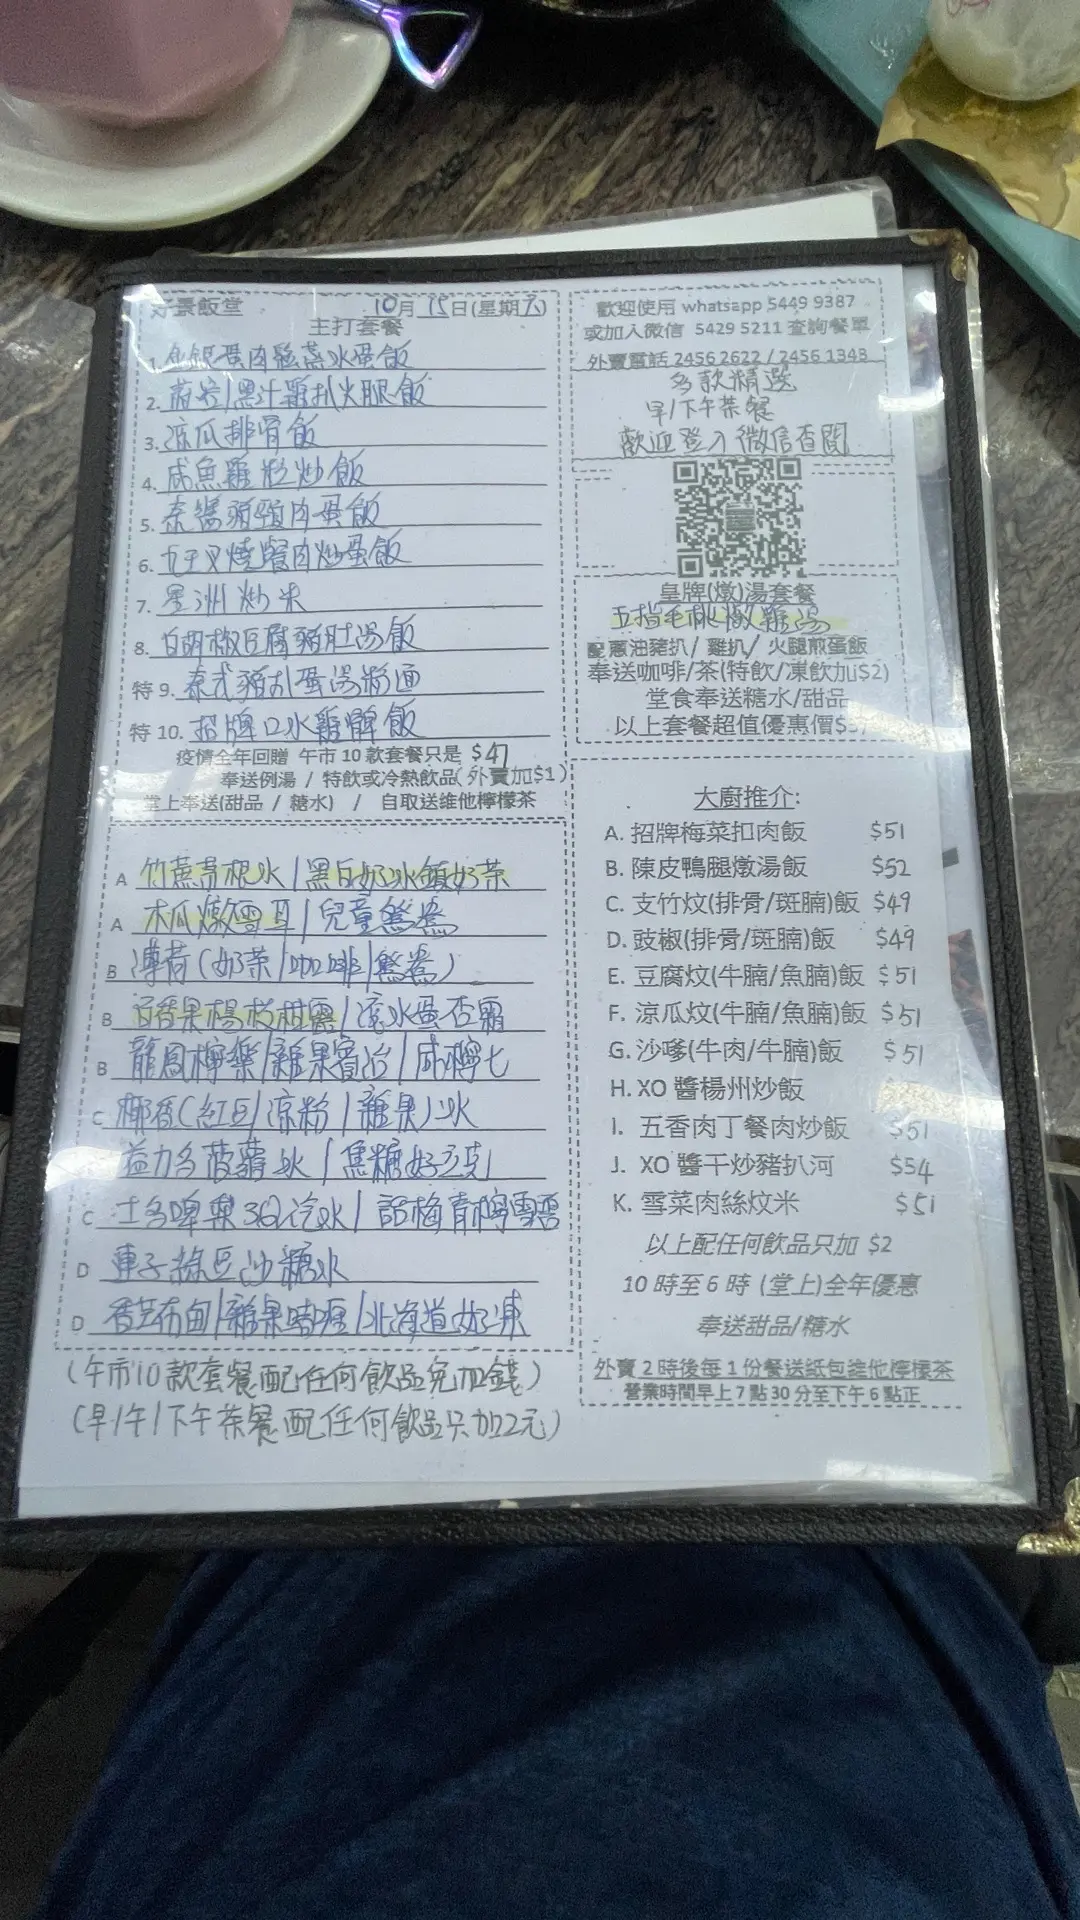 好景飯堂 10月 15日(星期六)
主打套餐
1. 蛋肉鬆蒸水蛋飯
2. 黑汁雞扒火腿飯
3. 涼瓜排骨飯
4. 咸魚雞粒炒飯
5. 泰式豬頸肉蛋飯
6. 叉燒餐肉炒蛋飯
7. 星洲炒米
8. 白胡椒豆腐豬肚湯飯
特 9. 泰式豬扒蛋湯撈通
特 10. 招牌口水雞髀飯
疫情全年回贈 午市 10 款套餐只是 $47
奉送例湯 / 特飲或冷熱飲品(外賣加$1)
堂上奉送(甜品 / 糖水) / 自取送維他檸檬茶
A 竹蔗茅根水 / 黑白奶冰鎮奶茶
A 木瓜燉雪耳 / 兒童鴛鴦
B 薄荷(奶茶/咖啡/鴛鴦)
B 百香果楊枝柑露 / 滾水蛋杏霜
B 龍鳳檸樂/雜果賓治/咸檸七
C 椰香(紅豆/涼粉/雜果)冰
益力多菠蘿冰 / 焦糖奶克
C 士多啤梨汽水 / 話梅青檸雪碧
D 蓮子綠豆沙糖水
D 香芒布甸/雜果啫喱/北海道奶凍
(午市10款套餐配任何飲品免加錢)
(早/午/下午茶餐配任何飲品只加2元)
歡迎使用 whatsapp 5449 9387
或加入微信 5429 5211 查詢餐單
外賣電話 2456 2622 / 2456 1343
多款精選
早/下午茶餐
歡迎登入微信查閱
皇牌(燉)湯套餐
五指毛桃燉雞湯
配蔥油豬扒/ 雞扒/ 火腿煎蛋飯
奉送咖啡/茶(特飲/凍飲加$2)
堂食奉送糖水/甜品
以上套餐超值優惠價$5
大廚推介:
A. 招牌梅菜扣肉飯 $51
B. 陳皮鴨腿燉湯飯 $52
C. 支竹炆(排骨/斑腩)飯 $49
D. 豉椒(排骨/斑腩)飯 $49
E. 豆腐炆(牛腩/魚腩)飯 $51
F. 涼瓜炆(牛腩/魚腩)飯 $51
G. 沙嗲(牛肉/牛腩)飯 $51
H. XO 醬楊州炒飯
I. 五香肉丁餐肉炒飯 $51
J. XO 醬干炒豬扒河 $54
K. 雪菜肉絲炆米 $51
以上配任何飲品只加 $2
10 時至 6 時 (堂上)全年優惠
奉送甜品/糖水
外賣 2 時後每 1 份餐送紙包維他檸檬茶
營業時間早上 7 點 30 分至下午 6 點正